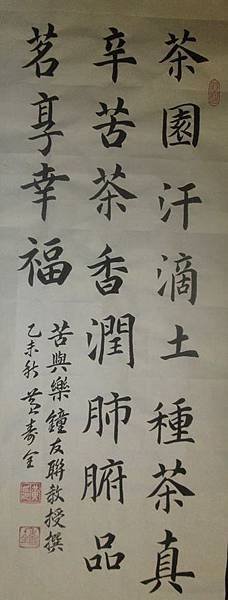 茶園汗滴土種茶真
辛苦茶香潤肺腑品
茗享幸福
苦與樂鐘友聯教授撰
乙未秋黃壽全